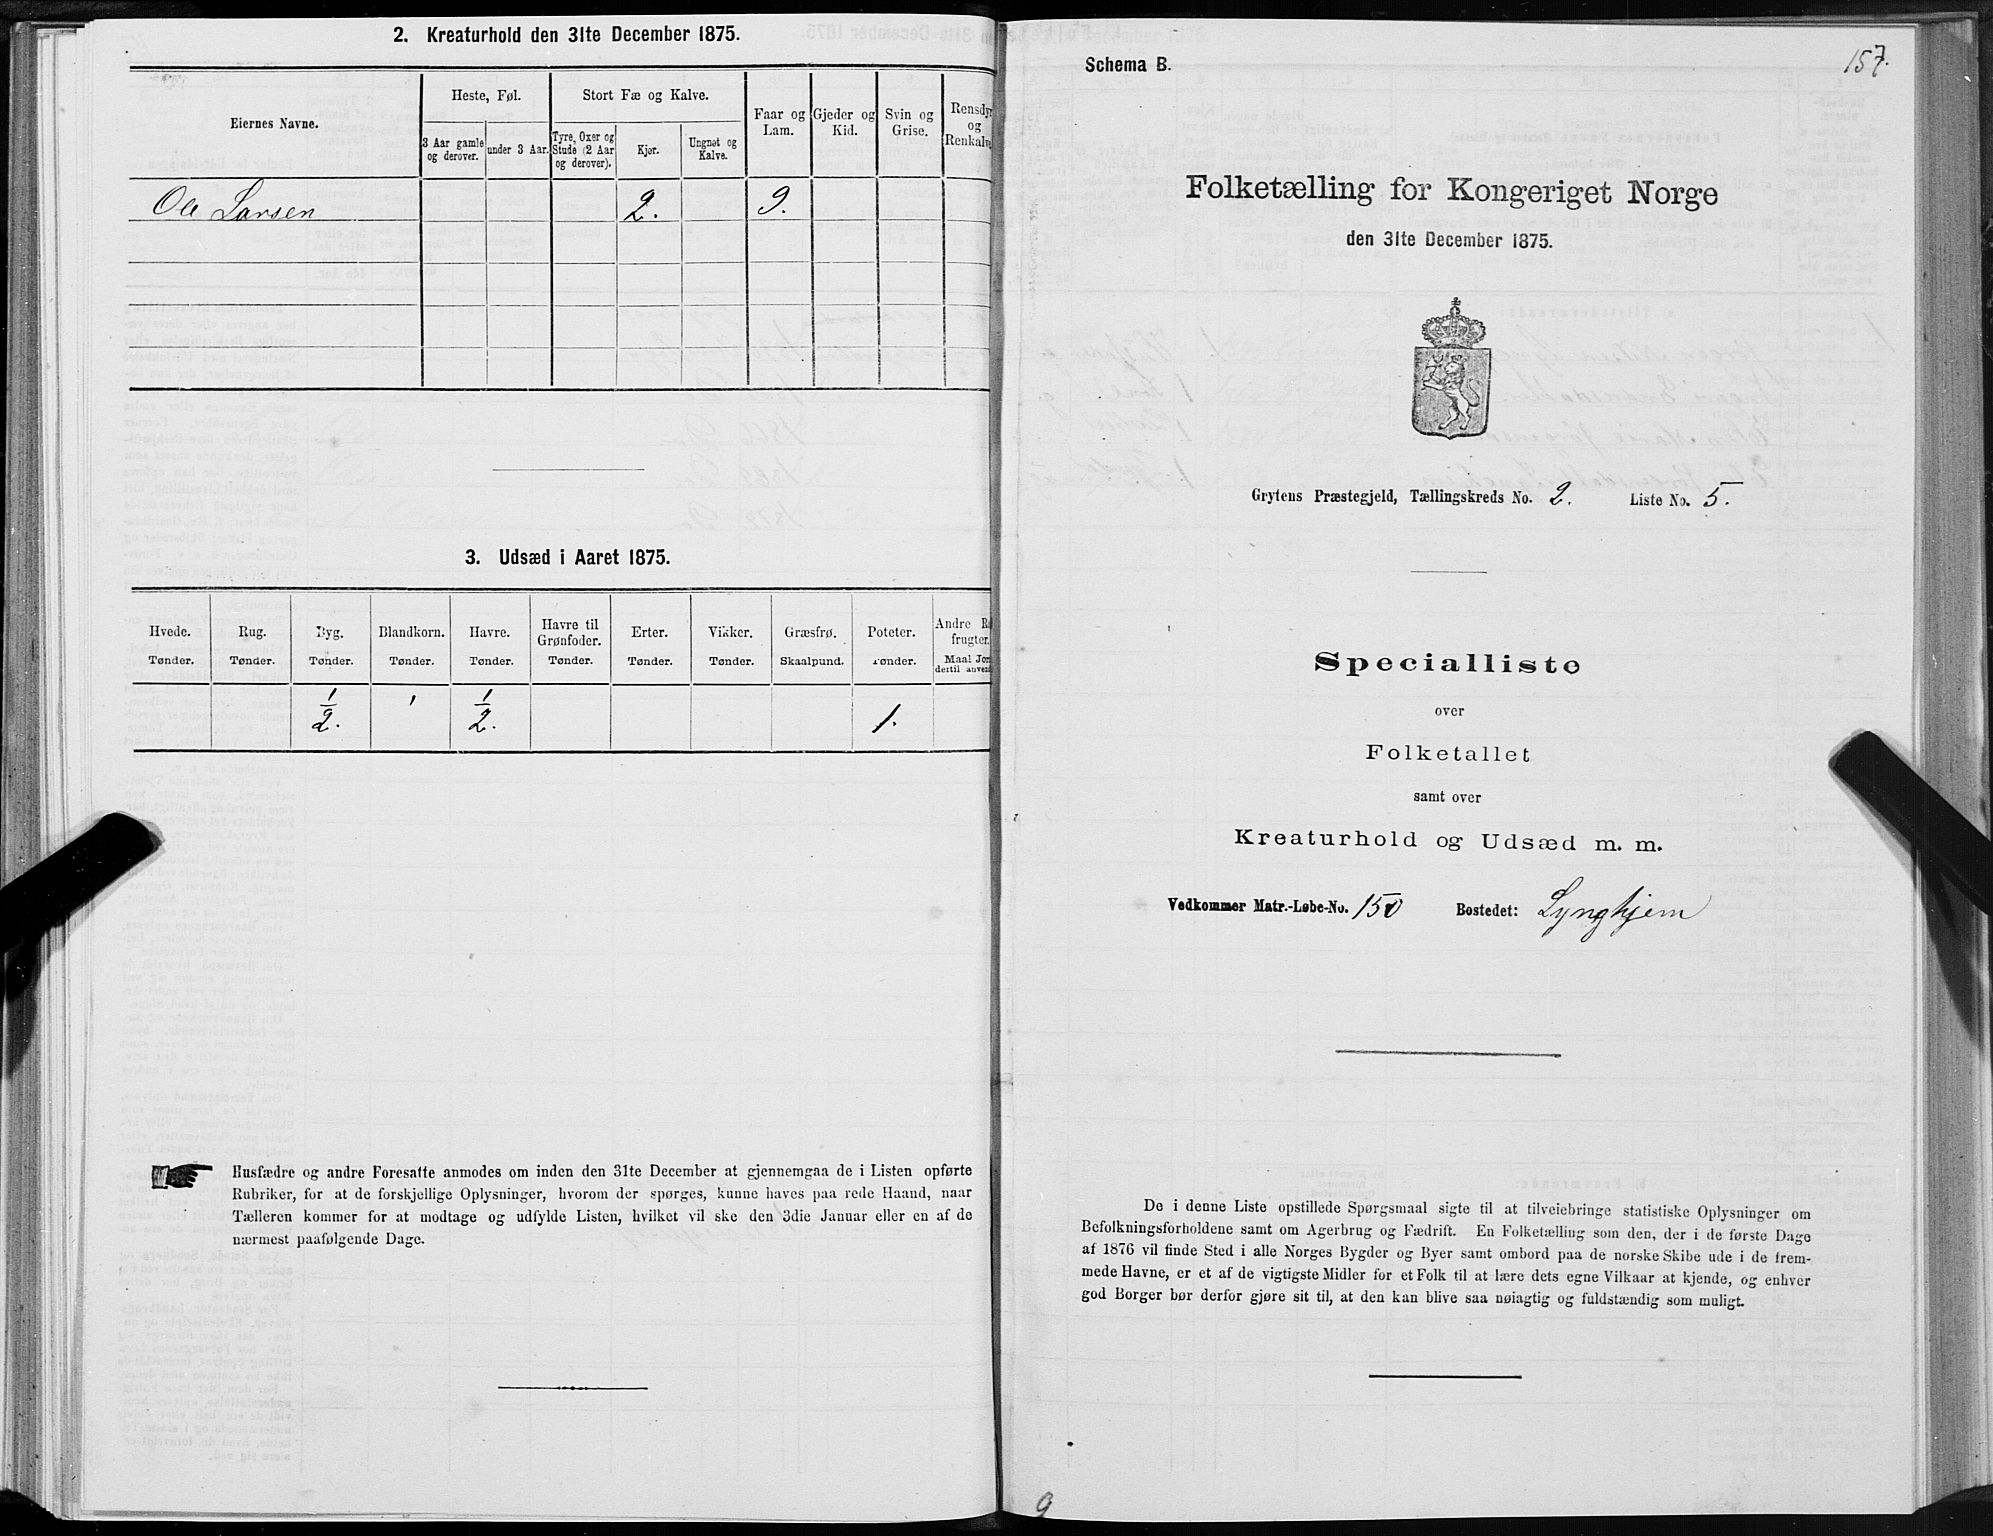 2. Kreaturhold den 31te December 1875.
Eiernes Navne.
Heste, Føl.
Stort Fæ og Kalve.
Faar og Lam.
Gjeder og Kid.
Svin og Grise.
Rensdyr og Renkalve
3 Aar gamle og derover.
under 3 Aar.
Tyre, Oxer og Stude (2 Aar og derover).
Kjør.
Ungnøt og Kalve.
Ole Larsen 2. 9.
3. Udsæd i Aaret 1875.
Hvede. Rug. Byg. Blandkorn. Havre. Havre til Grønfoder. Erter. Vikker. Græsfrø. Poteter. Andre Ro frugter.
Tønder. Tønder. Tønder. Tønder. Tønder. Tønder. Tønder. Tønder. Skaalpund. Tønder. Maal Jor dertil anvend
1/2. 1/2. 1.
Husfædre og andre Foresatte anmodes om inden den 31te December at gjennemgaa de i Listen opførte
Rubriker, for at de forskjellige Oplysninger, hvorom der spørges, kunne haves paa rede Haand, naar
Tælleren kommer for at modtage og udfylde Listen, hvilket vil ske den 3die Januar eller en af de
nærmest paafølgende Dage.
Schema B.
157.
Folketælling for Kongeriget Norge
den 31te December 1875.
Grytens Præstegjeld, Tællingskreds No. 2. Liste No. 5.
Specialliste
over
Folketallet
samt over
Kreaturhold og Udsæd m. m.
Vedkommer Matr.-Løbe-No. 150 Bostedet: Lynghjem
De i denne Liste opstillede Spørgsmaal sigte til at tilveiebringe statistiske Oplysninger om
Befolkningsforholdene samt om Agerbrug og Fædrift. En Folketælling som den, der i de første Dage
af 1876 vil finde Sted i alle Norges Bygder og Byer samt ombord paa de norske Skibe ude i de frem-
mede Havne, er et af de vigtigste Midler for et Folk til at lære dets egne Vilkaar at kjende, og enhver
god Borger bør derfor gjøre sit til, at den kan blive saa nøiagtig og fuldstændig som muligt.
9